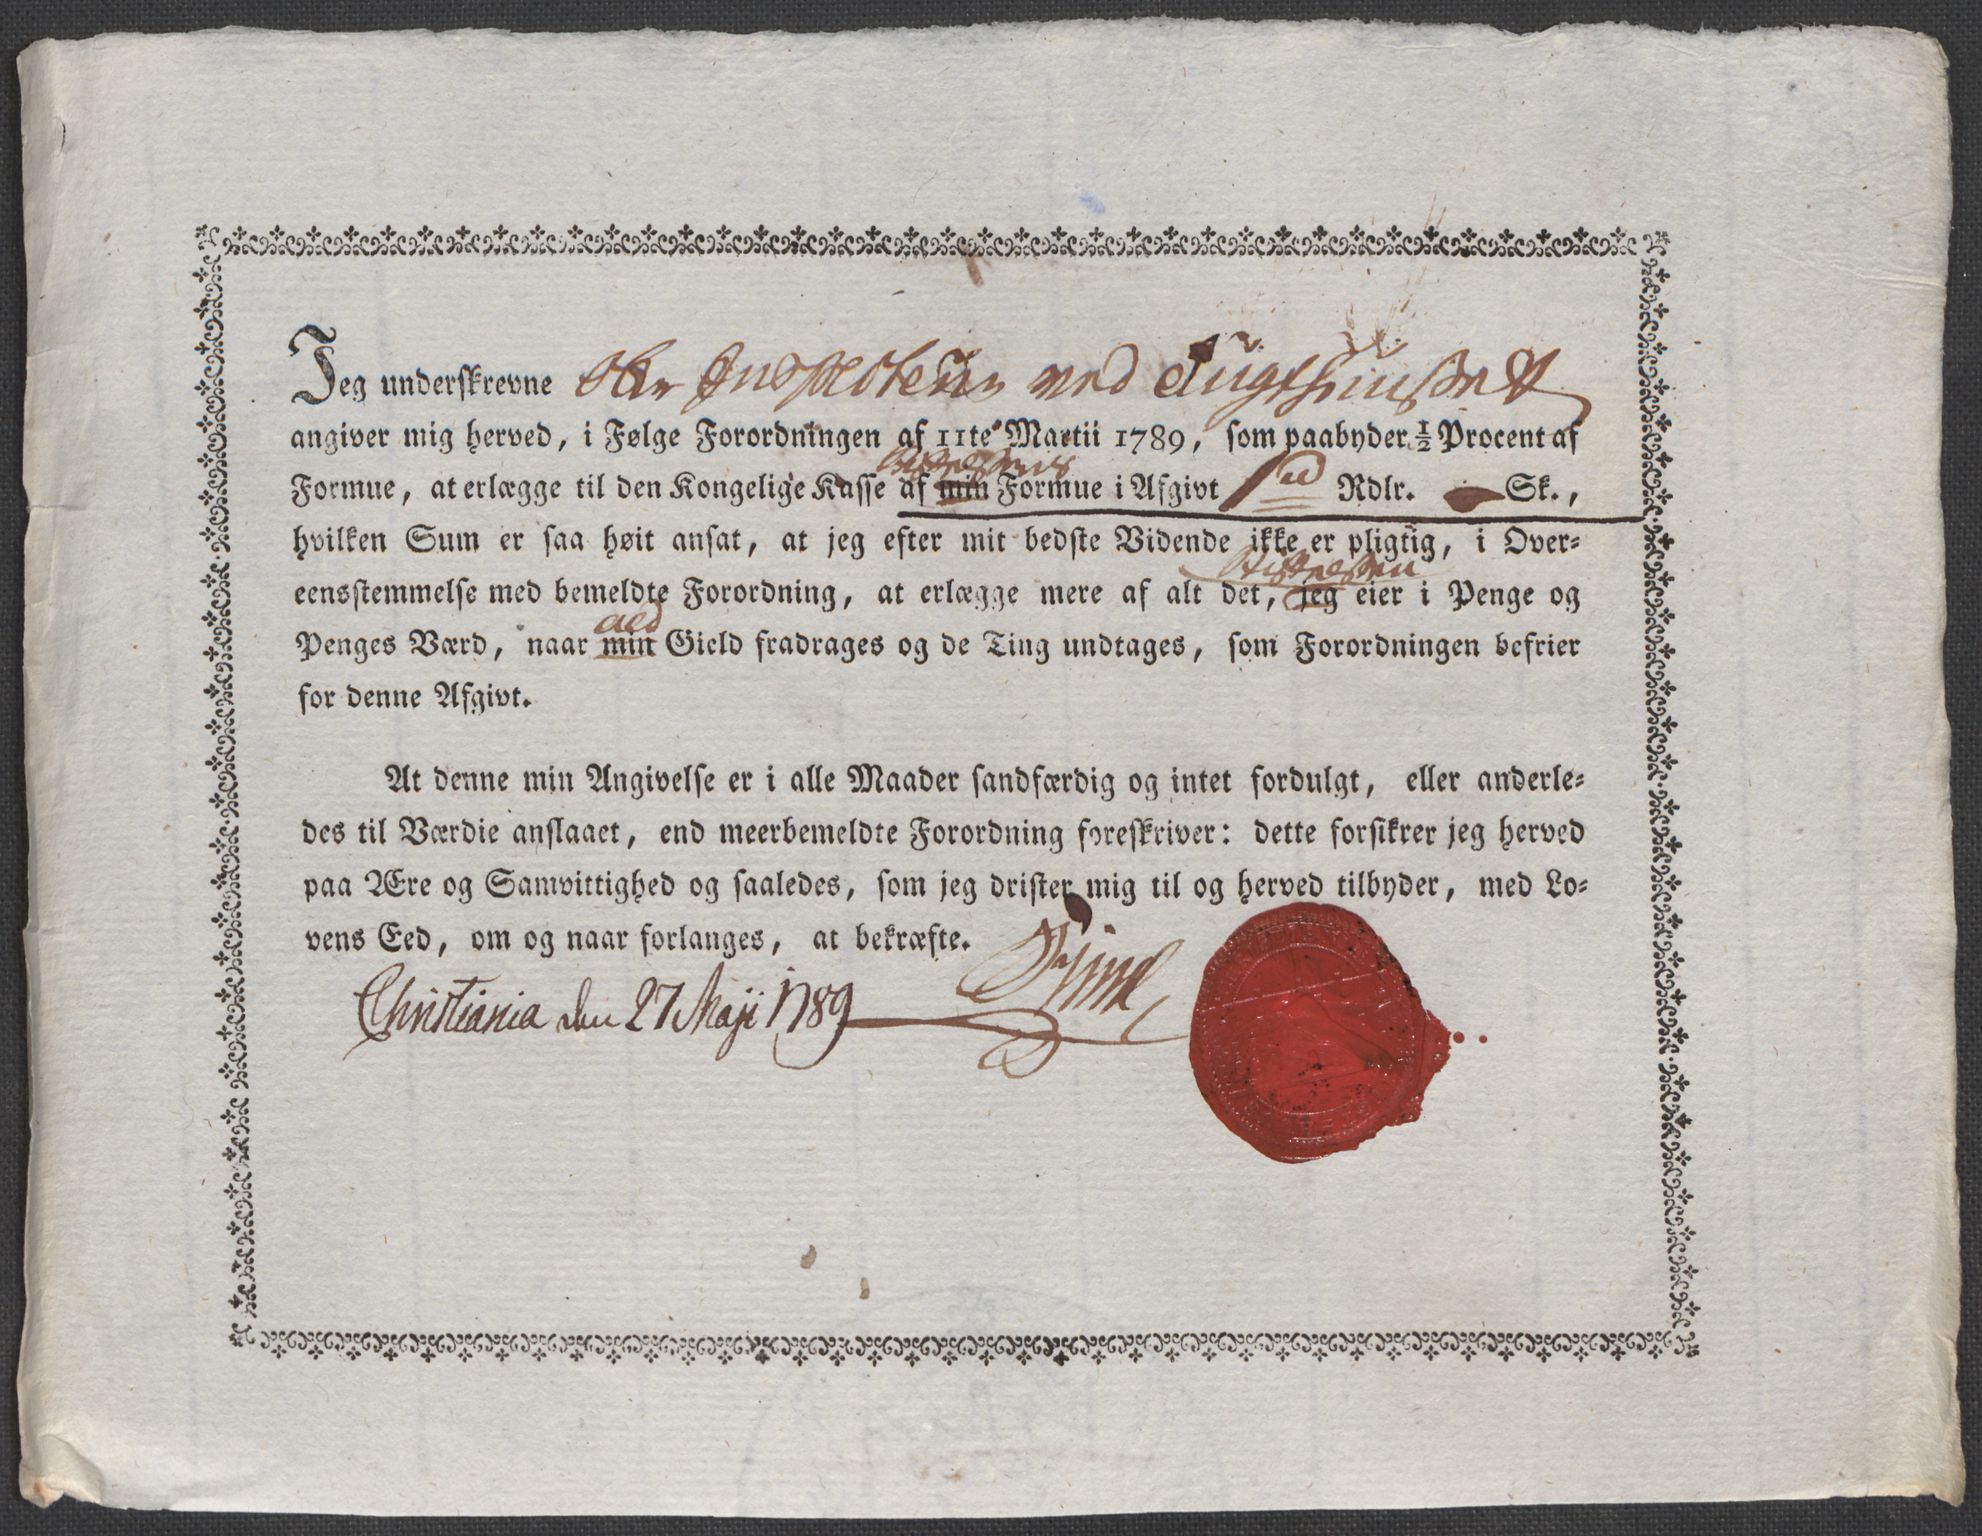 Jeg underskrevne Ober Inspecteur ved Tugthuuset
angiver mig herved, i Følge Forordningen af 11te Martii 1789, som paabyder ½ Procent af
Formue, at erlægge til den Kongelige Kasse af min Formue i Afgivt Rdlr. Sk.,
hvilken Sum er saa høit ansat, at jeg efter mit bedste Vidende ikke er pligtig, i Over-
eensstemmelse med bemeldte Forordning, at erlægge mere af alt det, jeg eier i Penge og
Penges Værd, naar min Gield fradrages og de Ting undtages, som Forordningen befrier
for denne Afgivt.
At denne min Angivelse er i alle Maader sandfærdig og intet fordulgt, eller anderle-
des til Værdie anslaaet, end meerbemeldte Forordning foreskriver: dette forsikrer jeg herved
paa Ære og Samvittighed og saaledes, som jeg drister mig til og herved tilbyder, med Lo-
vens Eed, om og naar forlanges, at bekræfte.
Christiania den 27 Maji 1789